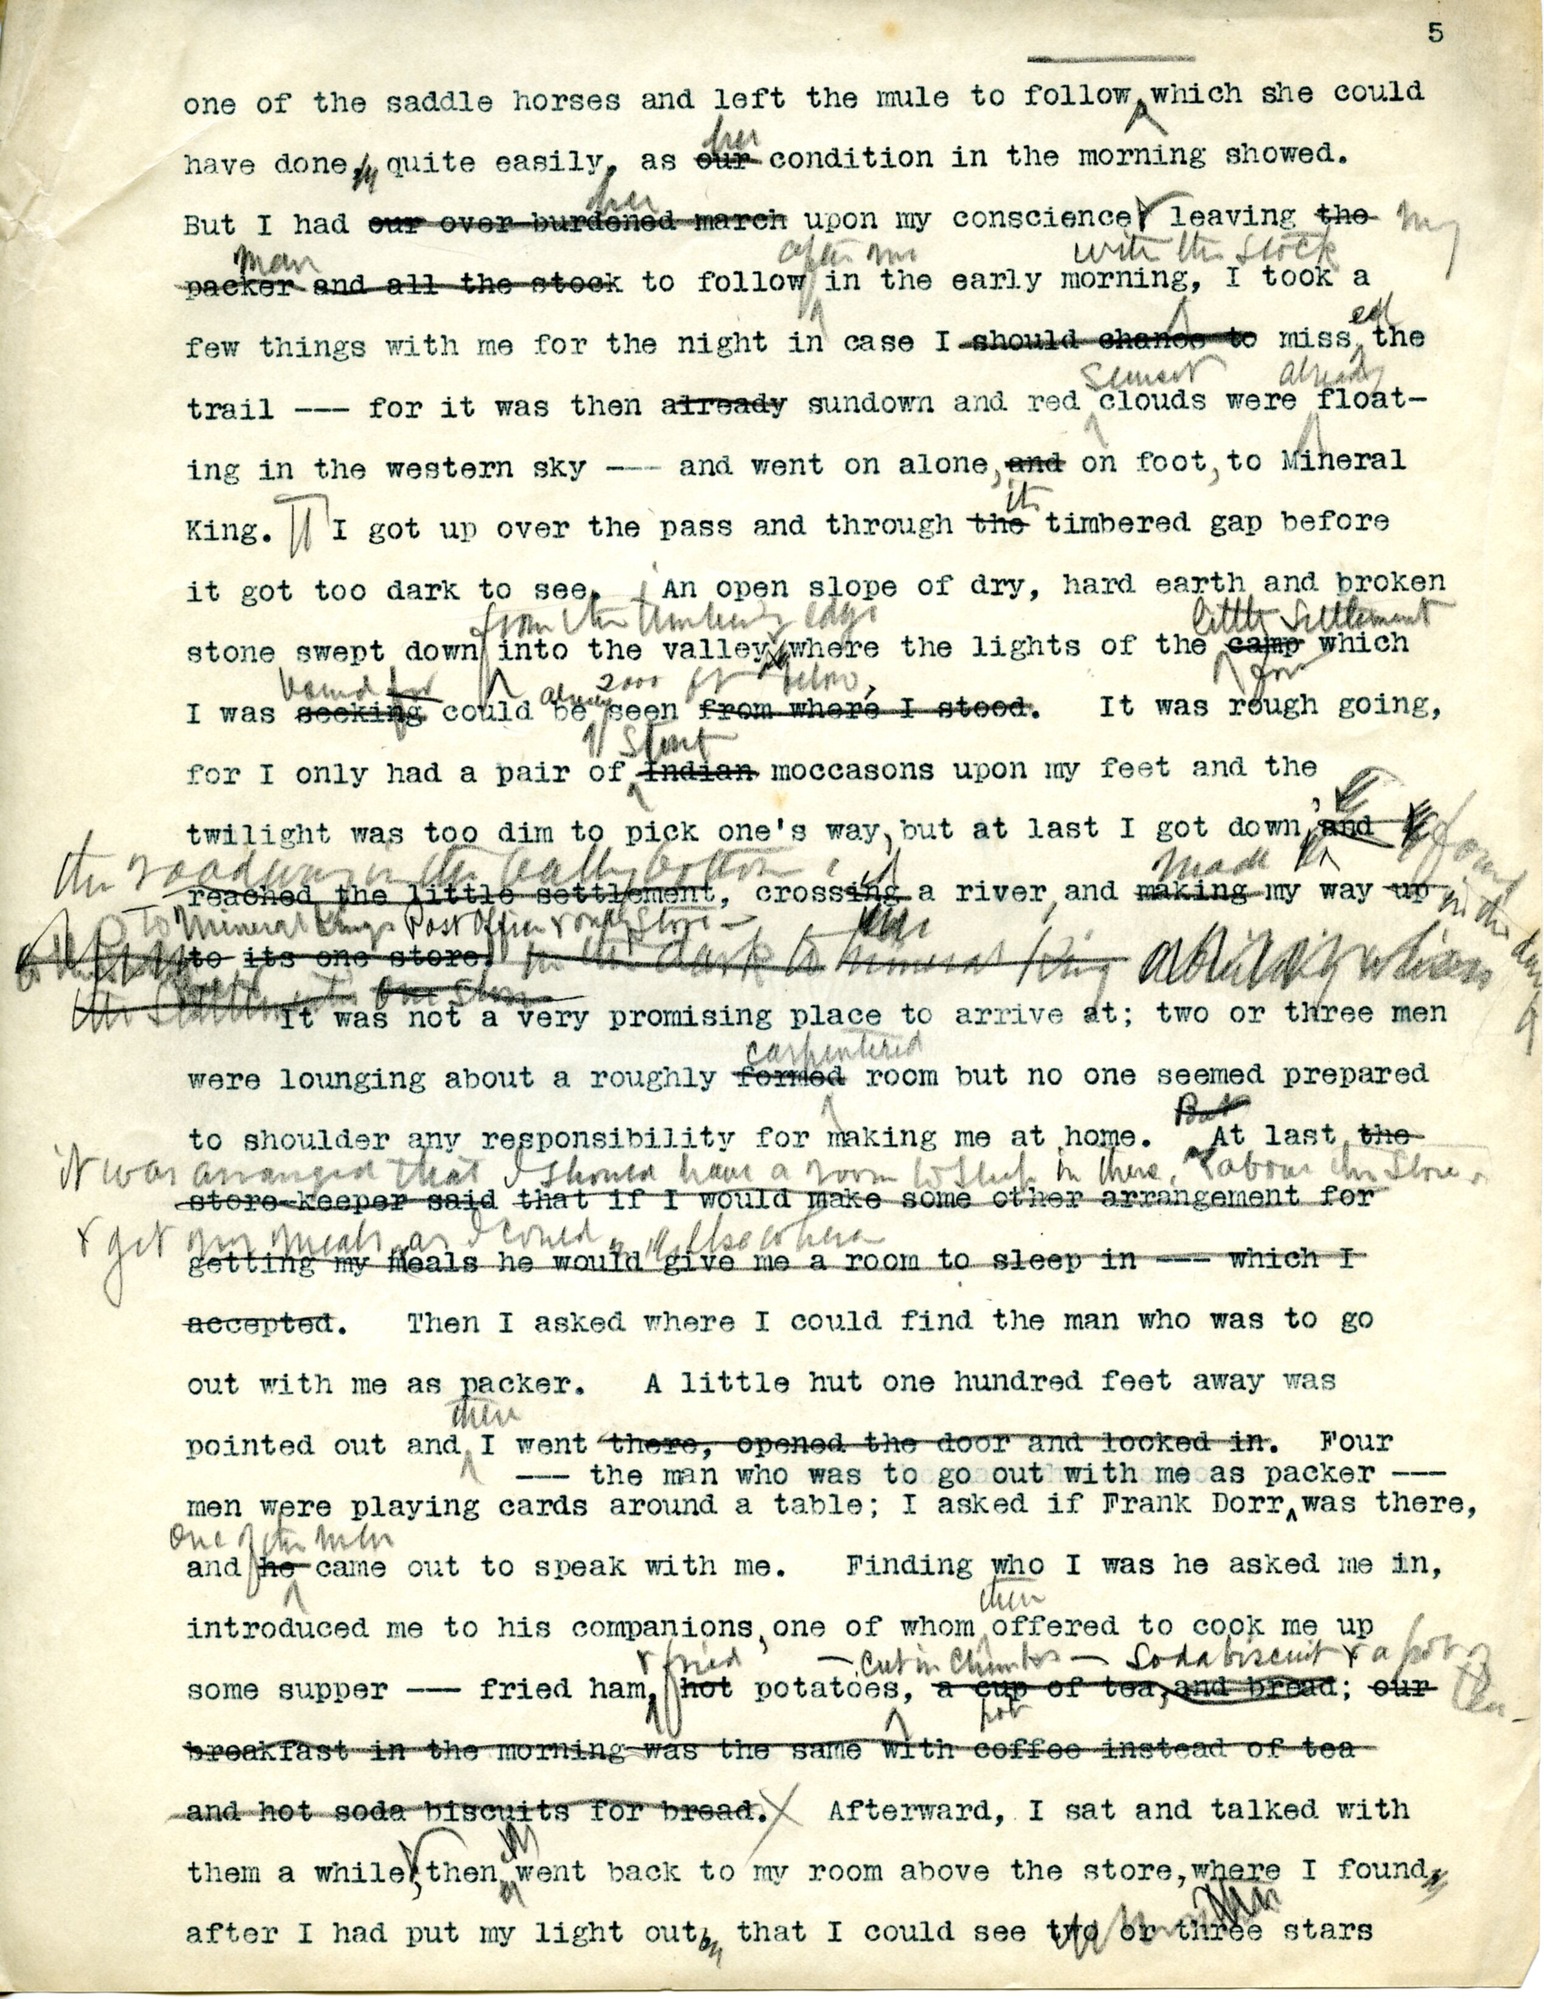 5
one of the saddle horses and left the mule to follow, which she could
her
have done, quite easily, as our condition in the morning showed.
her
But I had our over burdened march upon my conscience, leaving the my
man after me with the stock
packer and all the stock to follow in the early morning, I took a
ed
few things with me for the night in case I should chance to miss the
sunset already
trail --- for it was then already sundown and red clouds were float-
ing in the western sky --- and went on alone, and on foot, to Mineral
its
King. I got up over the pass and through the timbered gap before
it got too dark to see. An open slope of dry, hard earth and broken
from the timber's edge little settlement
stone swept down into the valley where the lights of the camp which
bound for already 2000 ft below, for
I was seeking could be seen from where I stood. It was rough going,
stout
for I only had a pair of Indian moccasons upon my feet and the
twilight was too dim to pick one's way, but at last I got down, and found
the roadway in the valley bottom; ed made in the dark
reached the little settlement, crossing a river, and making my way up
to Mineral King's Post Office & only store —
to its one store. in the dark to Mineral King
the settlement's one store
It was not a very promising place to arrive at; two or three men
carpentered
were lounging about a roughly formed room but no one seemed prepared
But
to shoulder any responsibility for making me at home. At last the
it was arranged that I should have a room to sleep in there, above the store,
store-keeper said that if I would make some other arrangement for
& get my meals, as I could, elsewhere
getting my meals he would give me a room to sleep in --- which I
accepted. Then I asked where I could find the man who was to go
out with me as packer. A little hut one hundred feet away was
there
pointed out and I went there, opened the door and looked in. Four
--- the man who was to go out with me as packer ---
men were playing cards around a table; I asked if Frank Dorr was there,
One of the men
and he came out to speak with me. Finding who I was he asked me in,
then
introduced me to his companions, one of whom offered to cook me up
& fried — cut in chunks — soda biscuit & a pot of tea —
some supper --- fried ham, hot potatoes, a cup of tea, and bread; our
pot
breakfast in the morning was the same with coffee instead of tea
and hot soda biscuits for bread. Afterward, I sat and talked with
them a while, then went back to my room above the store, where I found,
after I had put my light out, that I could see two or three stars